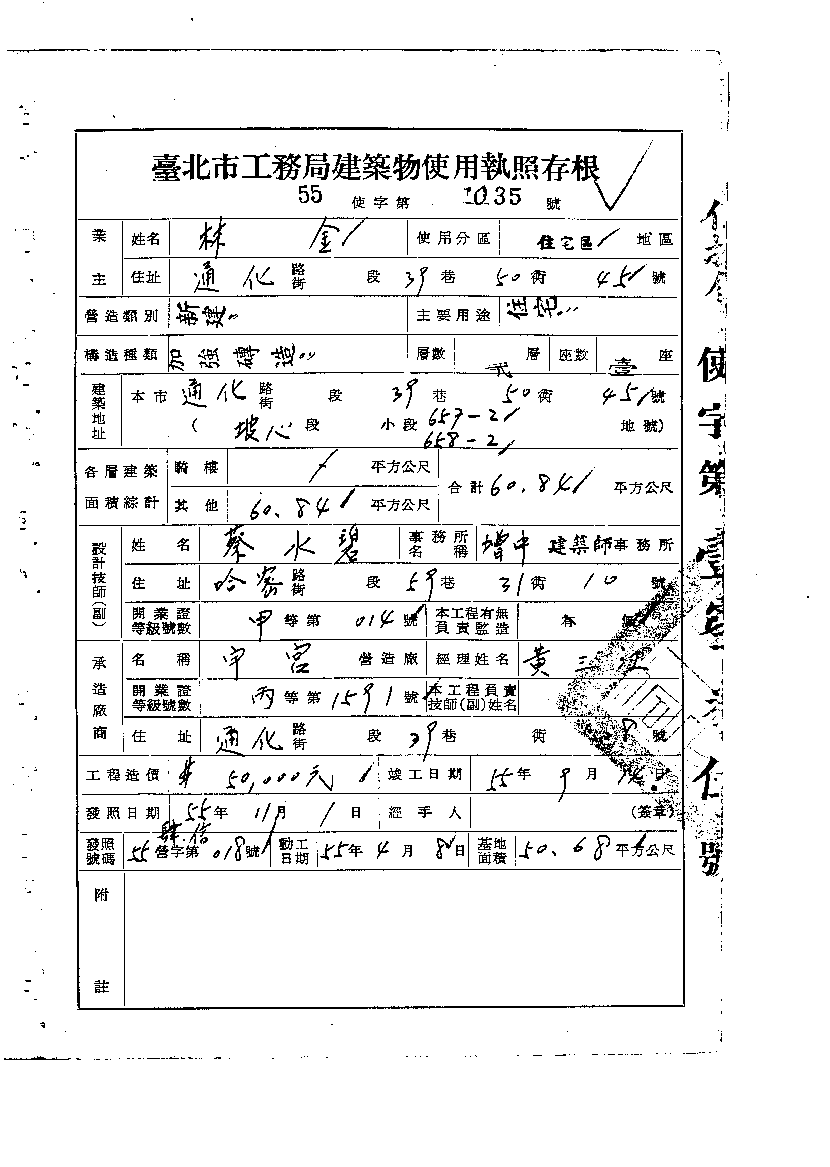 臺北市工務局建築物使用執照存根
55 使字第 1035 號
業主 姓名 林 金 使用分區 住宅區 地區
住址 通化 路街 段 39 巷 50 衖 45 號
營造類別 新建 主要用途 住宅
構造種類 加強磚造 層數 弍 層 座數 壹 座
建築地址 本市 通化 路街 段 39 巷 50 衖 45 號
( 坡心 段 小段 657-2 658-2 地號)
各層建築面積綜計 騎樓 平方公尺 合計 60.84 平方公尺
其他 60.84 平方公尺
設計技師(副) 姓名 蔡水碧 事務所名稱 增中 建築師事務所
住址 哈密 路街 段 59 巷 31 衖 10 號
開業證等級號數 甲 等第 014 號 本工程有無負責監造 有
承造廠商 名稱 宇宮 營造廠 經理姓名 黃三
開業證等級號數 丙 等第 1591 號 本工程負責技師(副)姓名
住址 通化 路街 段 39 巷 衖 號
工程造價 50,000元 竣工日期 55年 9月 日
發照日期 55年 11月 1日 經手人 (簽章)
發照號碼 55營字第 018號 動工日期 55年 4月 8日 基地面積 50.68 平方公尺
附註
使字第 號